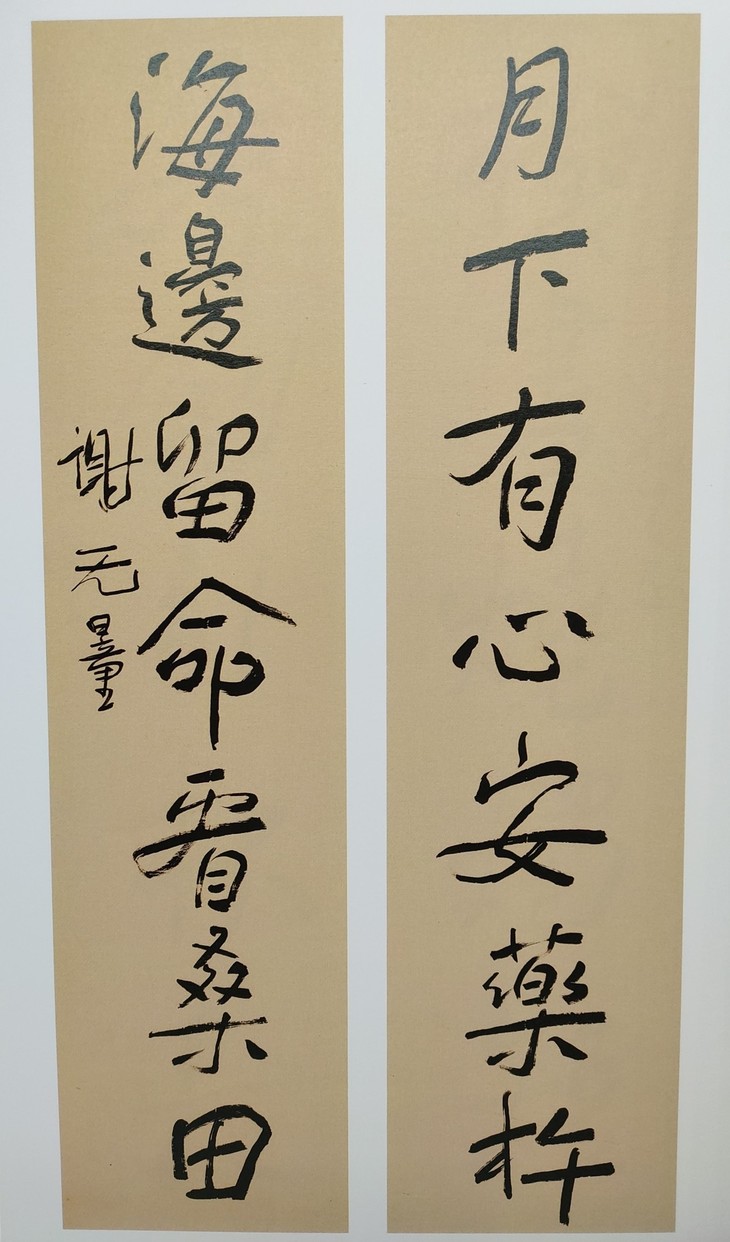 月下有心安藥杵
海邊留命看桑田
謝无量